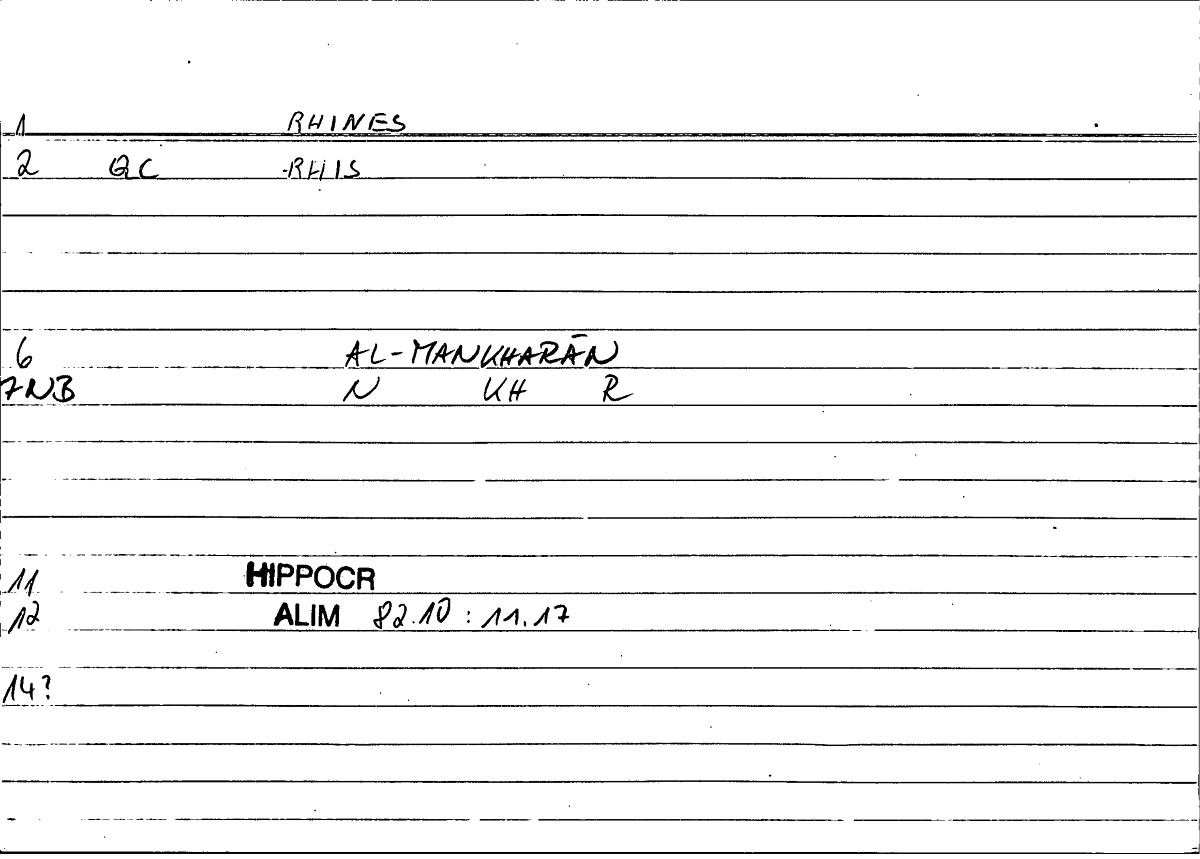 1 RHINES
2 QC -RHIS
6 AL-MANKHARĀN
7NB N KH R
11 HIPPOCR
12 ALIM 82.10 : 11.17
14?